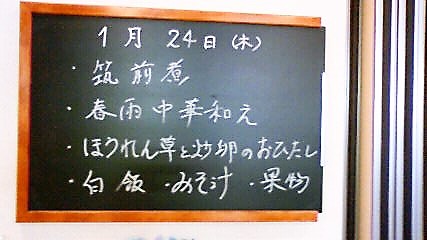 1月 24日(木)
・筑前煮
・春雨中華和え
・ほうれん草と炒卵のおひたし
・白飯 ・みそ汁 ・果物